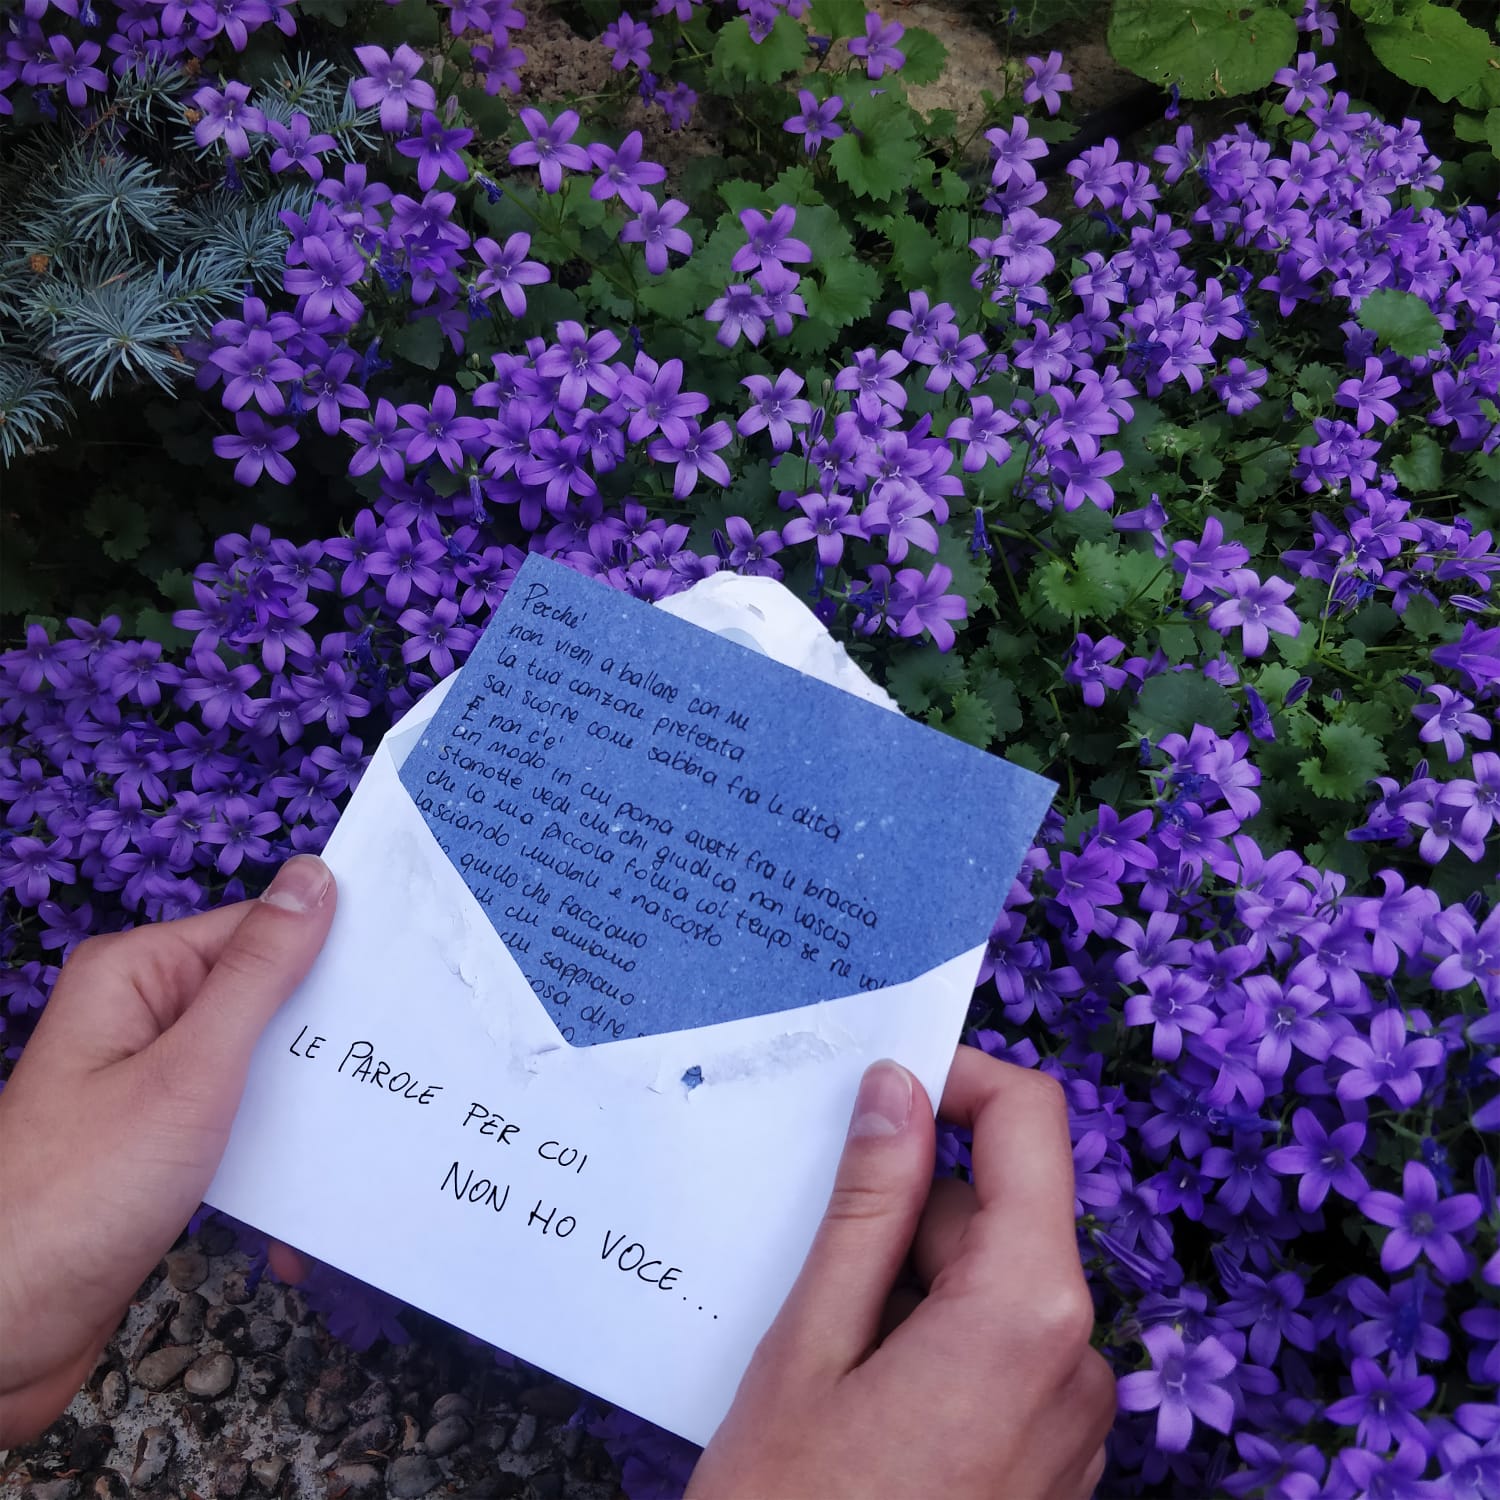 Perché
non vieni a ballare con me
la tua canzone preferita
sai scorre come sabbia fra le dita
E non c'è
un modo in cui possa averti fra le braccia
stanotte vedi che chi giudica non lascia
che la mia piccola follia col tempo se ne
lasciando immobile e nascosto
quello che facciamo
che amiamo
che sappiamo
cosa dire
LE PAROLE PER CUI
NON HO VOCE...